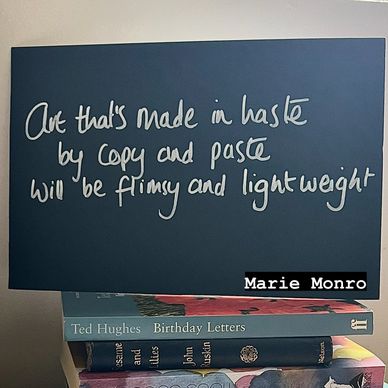 Art that's made in haste
by copy and paste
will be flimsy and lightweight
Marie Monro
Ted Hughes Birthday Letters ff
Sesame and Lilies John Ruskin